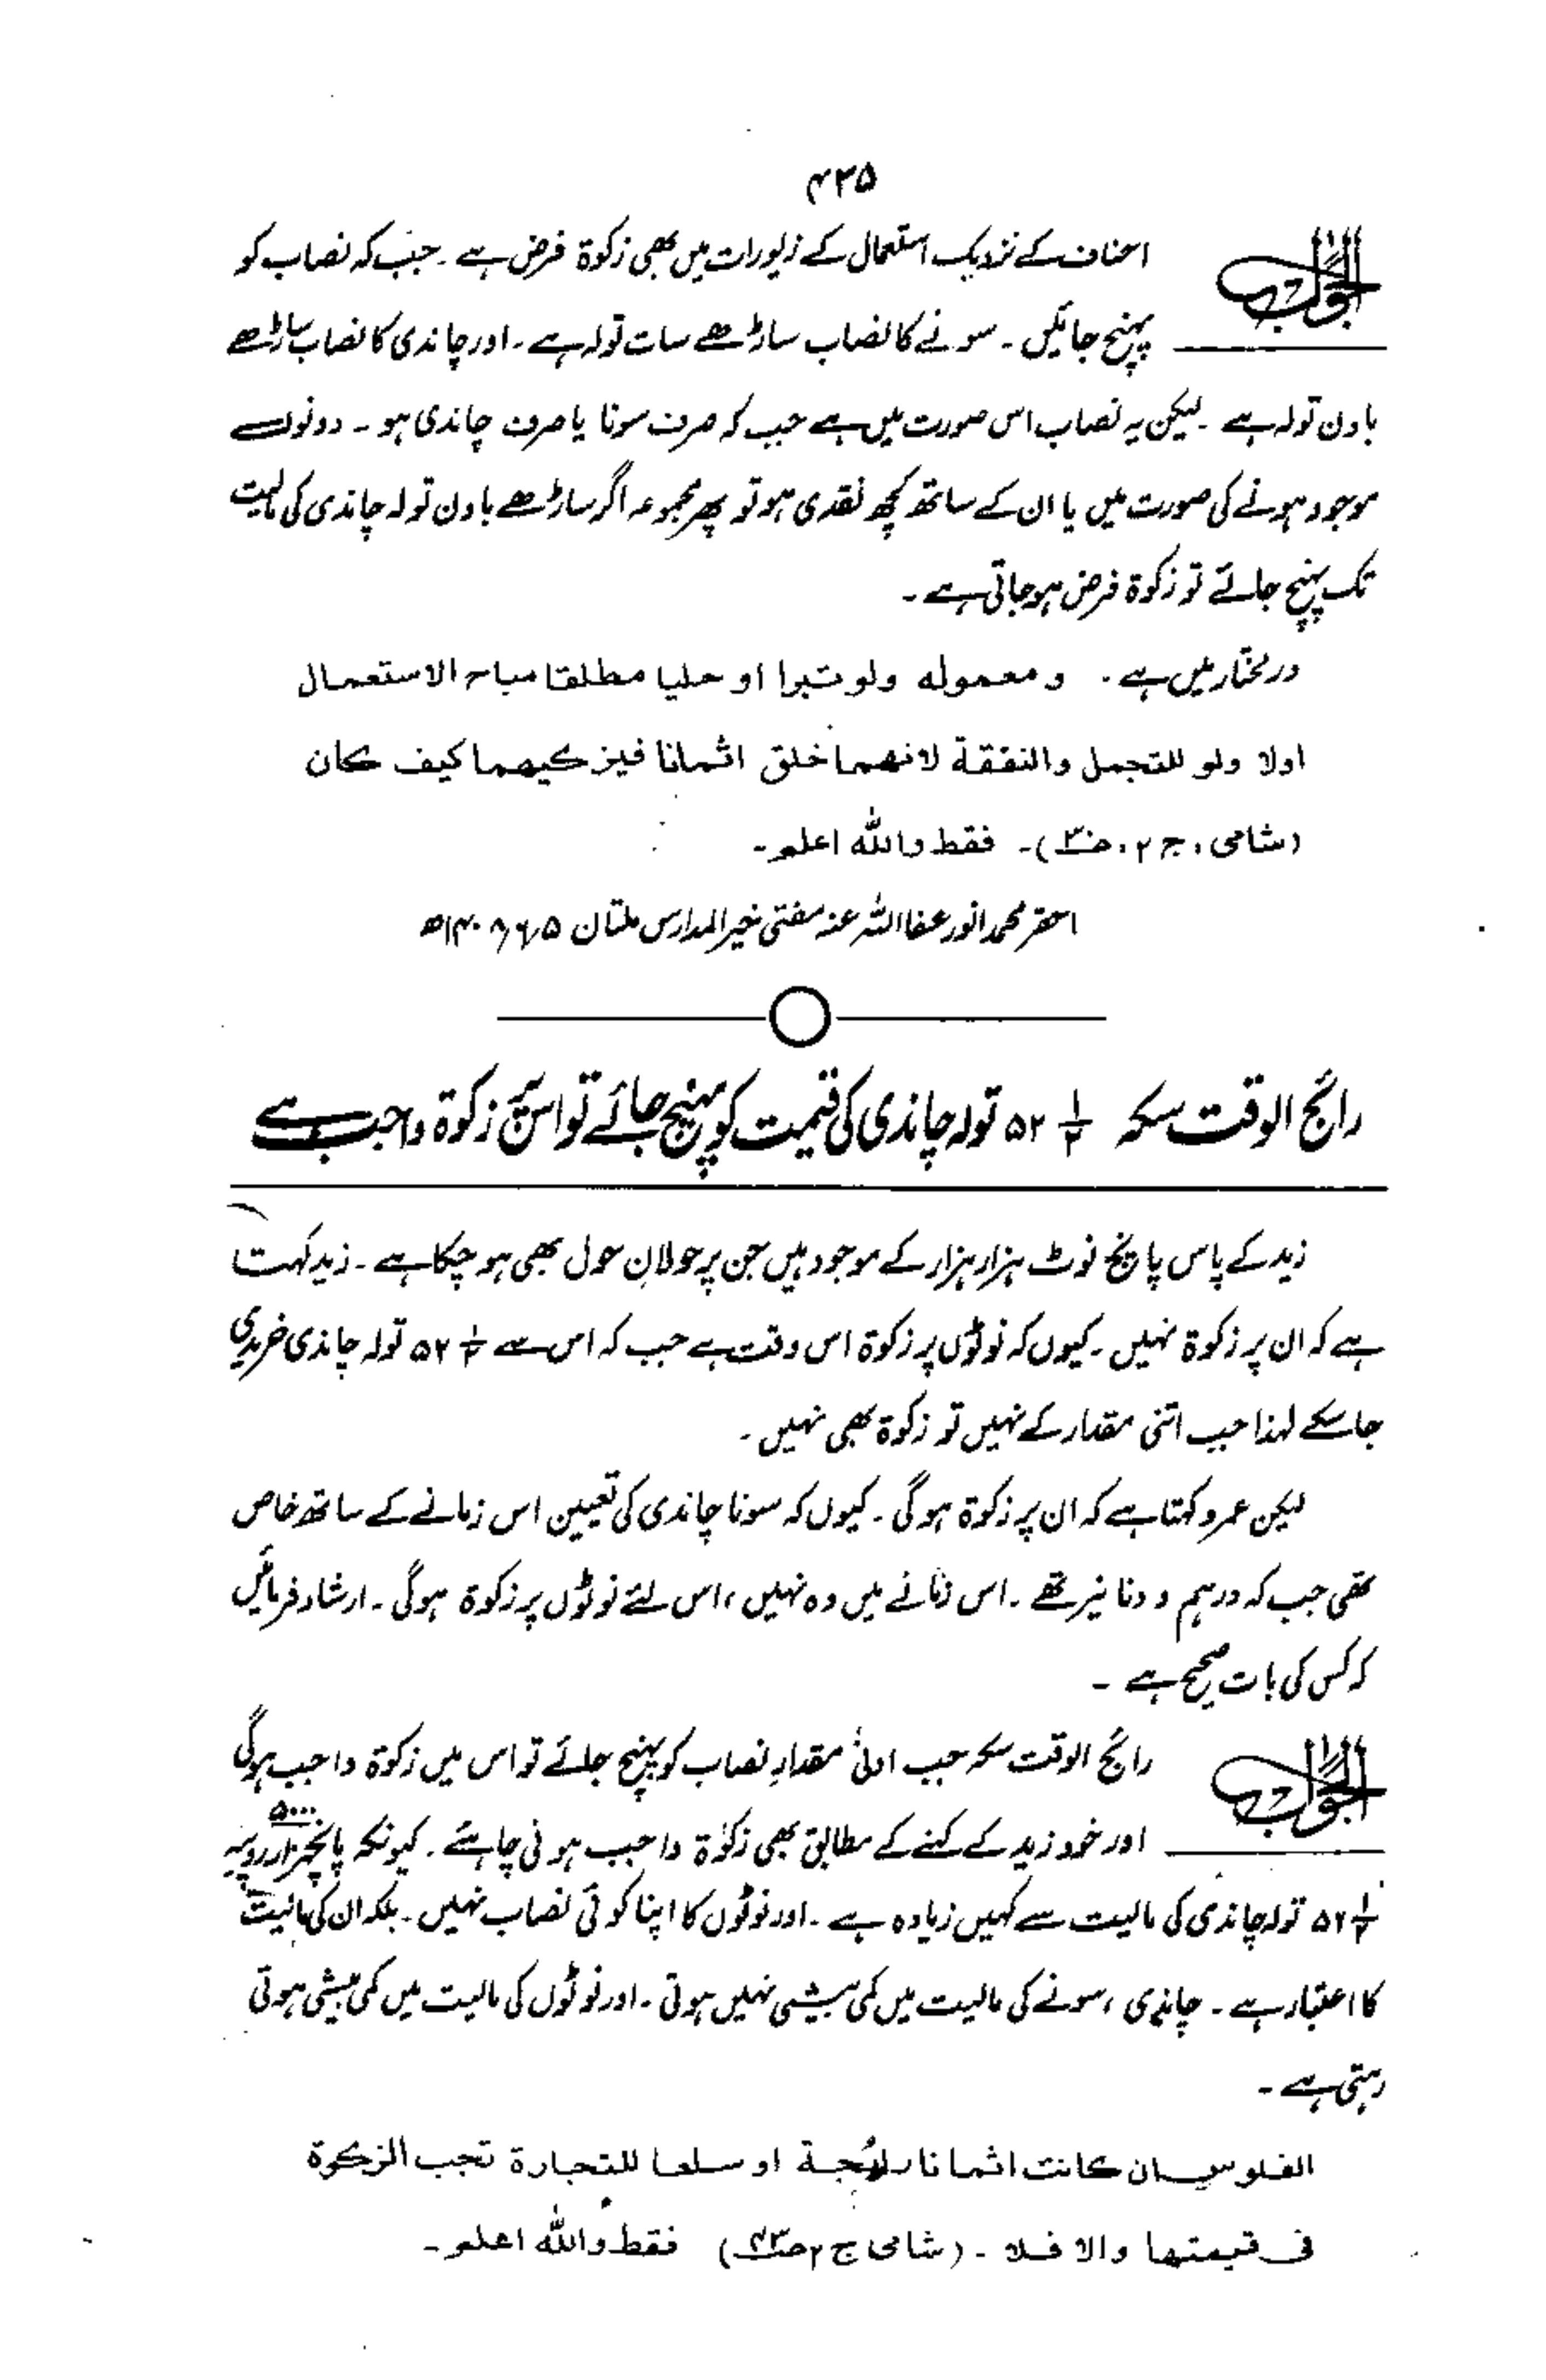 ۴۳۵
الجواب احناف کے نزدیک استعمال کے زیورات میں بھی زکوٰۃ فرض ہے ۔ جب کہ نصاب کو
پہنچ جائیں ۔ سونے کا نصاب ساڑھے سات تولہ ہے ۔ اور چاندی کا نصاب ساڑھے
باون تولہ ہے ۔ لیکن یہ نصاب اس صورت میں ہے جب کہ صرف سونا یا صرف چاندی ہو ۔ دونوں کے
موجود ہونے کی صورت میں یا ان کے ساتھ کچھ نقدی ہو تو پھر مجموعہ اگر ساڑھے باون تولہ چاندی کی مالیت
تک پہنچ جائے تو زکوۃ فرض ہو جاتی ہے ۔
درمختار میں ہے ۔ و معموله ولو تبرا او حليا مطلقا مباح الاستعمال
اولا ولو للتجمل والنفقة لانهما خلق اثمانا فيزكيهما كيف كان
(شامی ، ج ۲ ،) ۔ فقط واللہ اعلم ۔
احقر محمد انور عفا اللہ عنہ مفتی خیر المدارس ملتان ۵/۶/۱۴۰۸ھ
رائج الوقت سکہ ½ ۵۲ تولہ چاندی کی قیمت کو پہنچ جائے تو اس پر زکوۃ واجب ہے
زید کے پاس پانچ نوٹ ہزار ہزار کے موجود ہیں جن پر حولانِ حول بھی ہو چکا ہے ۔ زید کہتا
ہے کہ ان پر زکوۃ نہیں ۔ کیوں کہ نوٹوں پر زکوۃ اس وقت ہے جب کہ اس سے ½ ۵۲ تولہ چاندی خریدی
جا سکے لہذا جب اتنی مقدار کے نہیں تو زکوۃ بھی نہیں ۔
لیکن عمرو کہتا ہے کہ ان پر زکوۃ ہوگی ۔ کیوں کہ سونا چاندی کی تعیین اس زمانے کے ساتھ خاص
تھی جب کہ درہم و دنانیر تھے ۔ اس زمانے میں وہ نہیں ، اس لئے نوٹوں پر زکوۃ ہوگی ۔ ارشاد فرمائیں
کہ کس کی بات صحیح ہے ۔
الجواب رائج الوقت سکہ جب ادنیٰ مقدارِ نصاب کو پہنچ جائے تو اس میں زکوۃ واجب ہوگی
اور خود زید کے کہنے کے مطابق بھی زکوٰۃ واجب ہونی چاہئے ۔ کیونکہ پانچہزار ۵۰۰۰ روپیہ
½ ۵۲ تولہ چاندی کی مالیت سے کہیں زیادہ ہے ۔ اور نوٹوں کا اپنا کوئی نصاب نہیں ۔ بلکہ ان کی مالیت
کا اعتبار ہے ۔ چاندی ، سونے کی مالیت میں کمی بیشی نہیں ہوتی ۔ اور نوٹوں کی مالیت میں کمی بیشی ہوتی
رہتی ہے ۔
الفلوس ان كانت اثمانا رائجة او سلعا للتجارة تجب الزكوة
فى قيمتها والا فلا ۔ (شامی ج ۲) فقط واللہ اعلم ۔